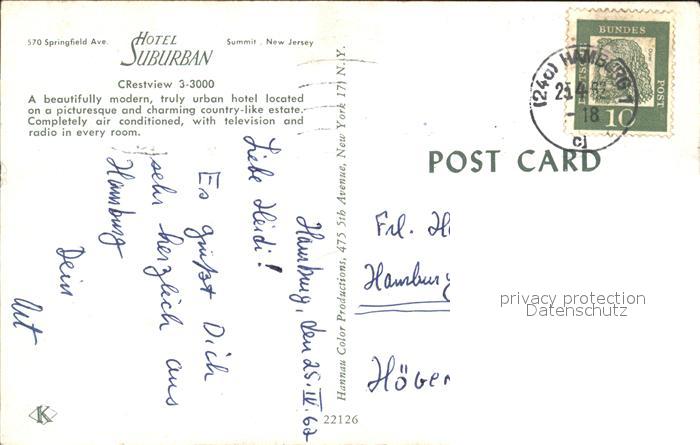 570 Springfield Ave.
HOTEL
SUBURBAN
Summit . New Jersey
CRestview 3-3000
A beautifully modern, truly urban hotel located
on a picturesque and charming country-like estate.
Completely air conditioned, with television and
radio in every room.
Hamburg, den 25. IV. 62
Liebe Heidi!
Es grüßt Dich
sehr herzlich aus
Hamburg
Dein
K
22126
Hannau Color Productions, 475 5th Avenue, New York 17, N.Y.
DEUTSCHE
BUNDES
POST
10
(24a) HAMBURG 1
25.4.62
- 18
cj
POST CARD
Frl. H
Hamburg
Höver
privacy protection
Datenschutz